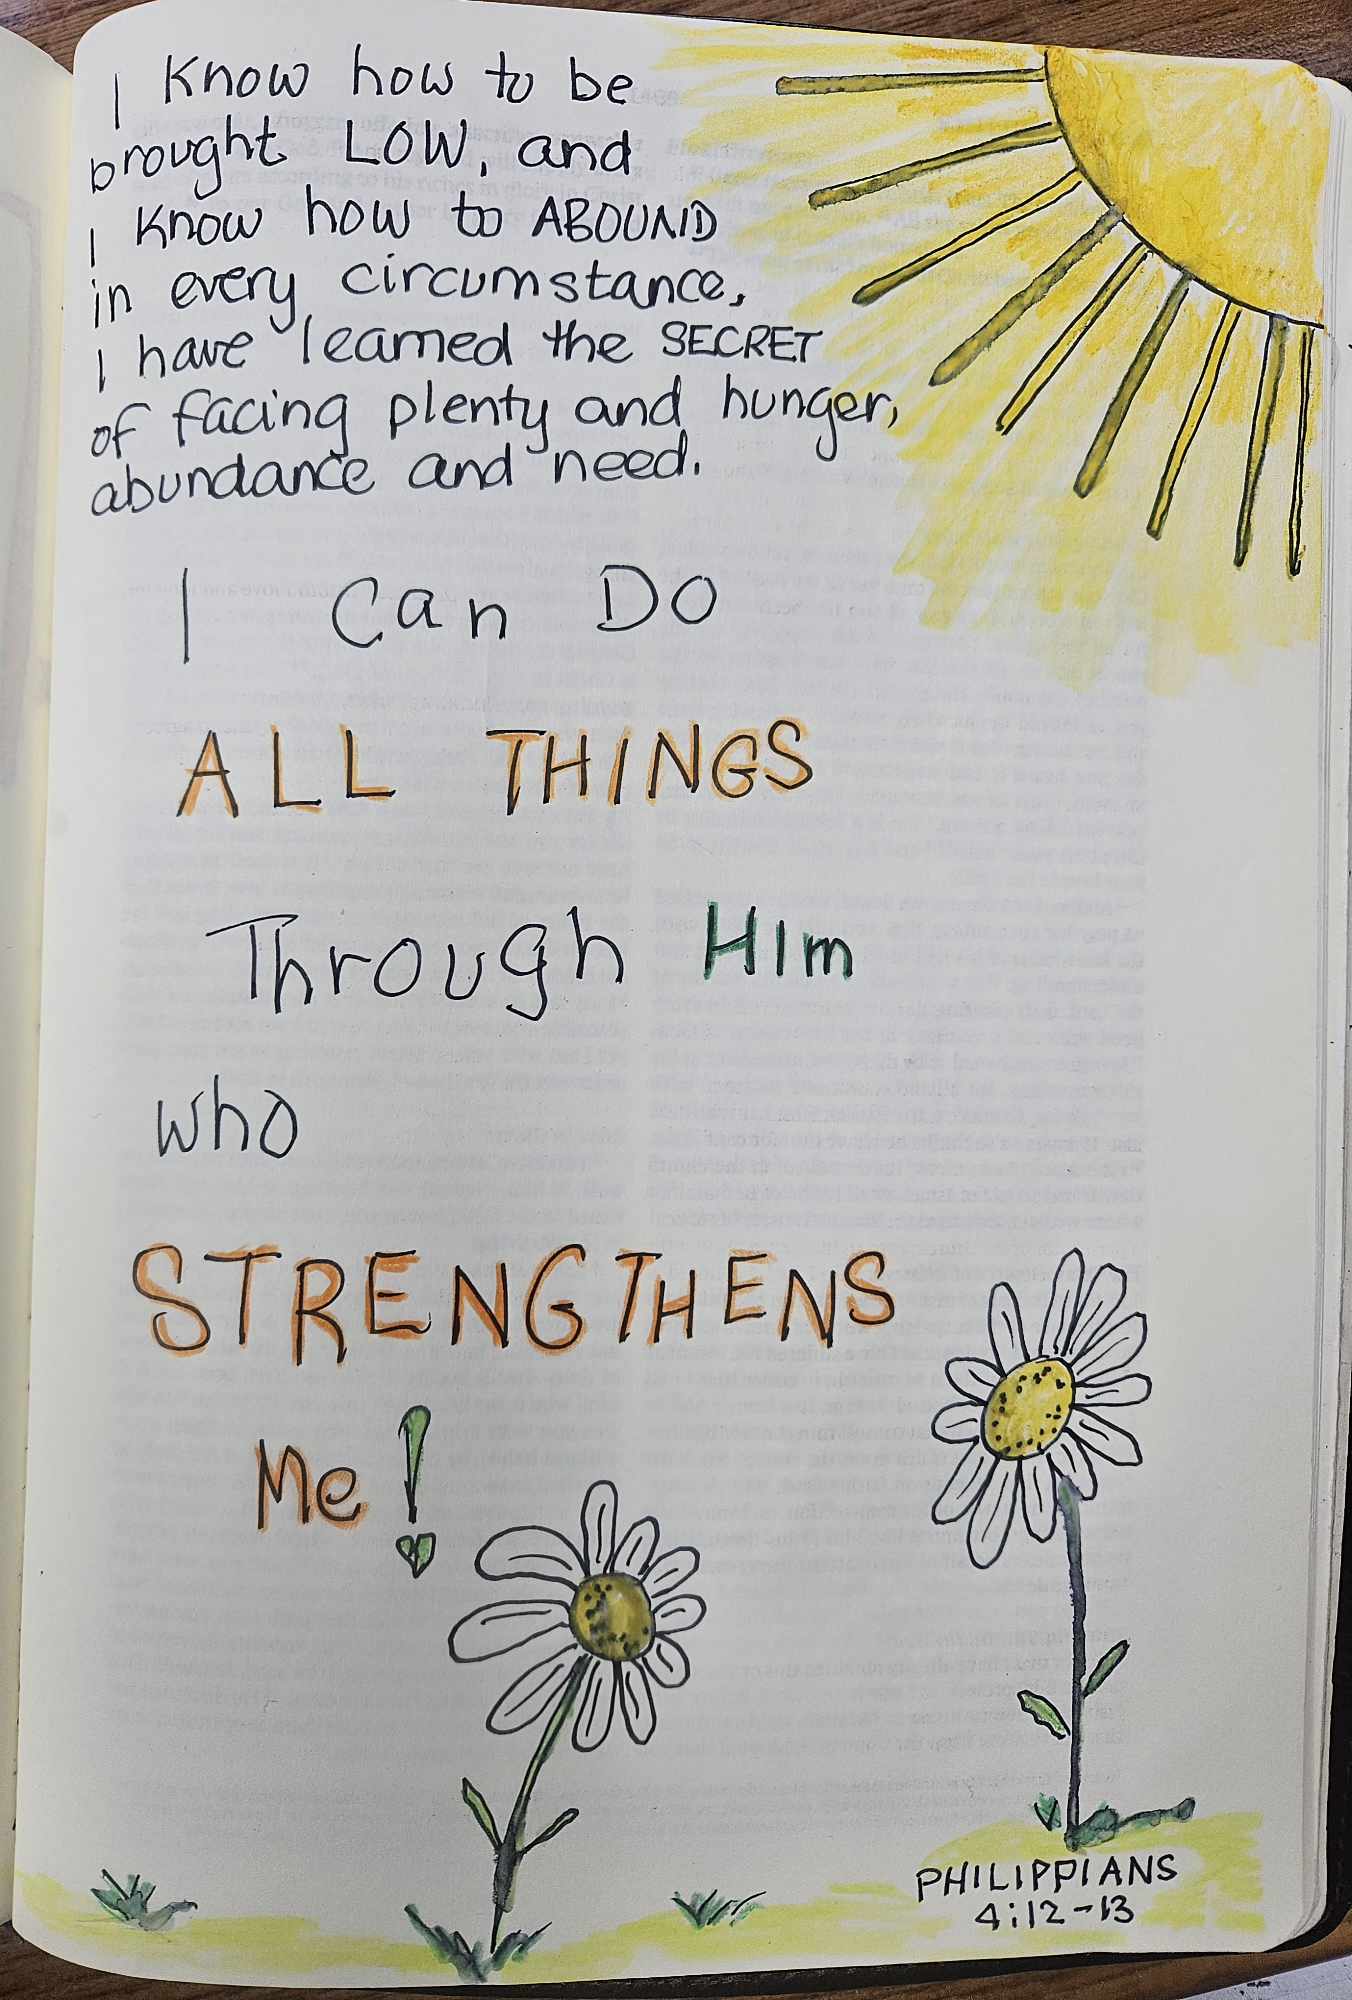 I know how to be
brought LOW, and
I know how to ABOUND
in every circumstance,
I have learned the SECRET
of facing plenty and hunger,
abundance and need.
I Can DO
ALL THINGS
Through HIm
who
STRENGTHENS
Me!
PHILIPPIANS
4:12-13